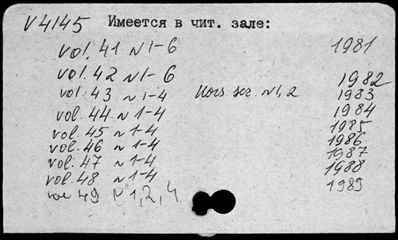 V4145 Имеется в чит. зале:
vol. 41 N 1-6 1981
vol. 42 N 1-6 1982
vol. 43 N 1-4 Hors ser. N 1, 2 1983
vol. 44 N 1-4 1984
vol. 45 N 1-4 1985
vol. 46 N 1-4 1986
vol. 47 N 1-4 1987
vol. 48 N 1-4 1988
vol 49 N 1, 2, 4 1989